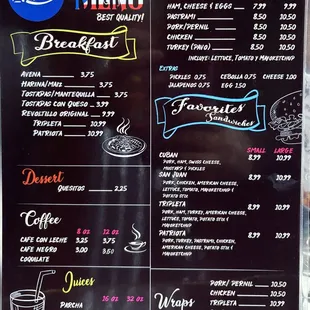 MENU
BEST QUALITY!
Breakfast
AVENA 3.75
HARINA/MAIZ 3.75
TOSTADAS/MANTEQUILLA 3.75
TOSTADAS CON QUESO 3.99
REVOLTILLO ORIGINAL 9.99
TRIPLETA 10.99
PATRIOTA 10.99
Dessert
QUESITOS 2.25
Coffee
8 OZ 12 OZ
CAFE CON LECHE 3.25 3.75
CAFE NEGRO 3.00 3.50
COQULATE
Juices
16 OZ 32 OZ
PARCHA
HAM, CHEESE & EGGS 7.99 9.99
PASTRAMI 8.50 10.50
PORK/PERNIL 8.50 10.50
CHICKEN 8.50 10.50
TURKEY (PAVO) 8.50 10.50
INCLUYE: LETTUCE, TOMATO Y MAYOKETCHUP
EXTRAS
PICKLES 0.75 CEBOLLA 0.75 CHEESE 1.00
JALAPENOS 0.75 EGG 1.50
Favorites
Sandwiches
SMALL LARGE
CUBAN 8.99 10.99
PORK, HAM, SWISS CHEESE,
MUSTARD & PICKLES
SAN JUAN 8.99 10.99
PORK, CHICKEN, AMERICAN CHEESE,
LETTUCE, TOMATO, MAYOKETCHUP
& POTATO STIX
TRIPLETA 8.99 10.99
PORK, HAM, TURKEY, AMERICAN CHEESE,
LETTUCE, TOMATO, POTATO STIX &
MAYOKETCHUP
PATRIOTA 8.99 10.99
PORK, TURKEY, PASTRAMI, CHICKEN,
AMERICAN CHEESE, LETTUCE, TOMATO,
POTATO STIX & MAYOKETCHUP
Wraps
PORK/ PERNIL 10.50
CHICKEN 10.50
TRIPLETA 10.99